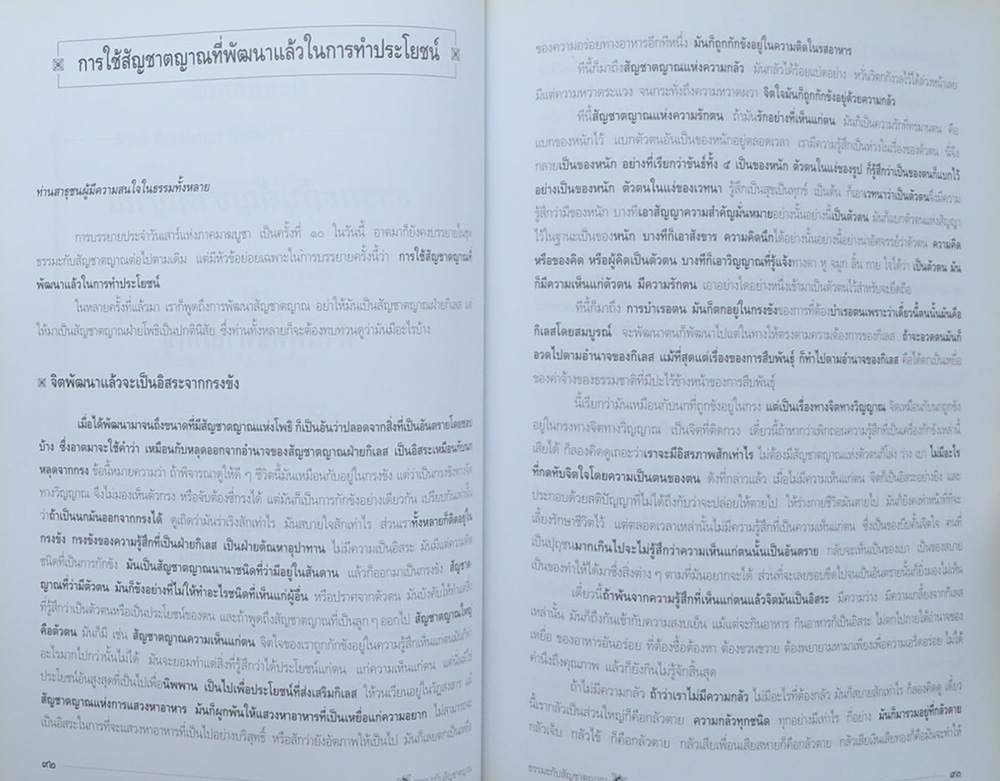 การใช้สัญชาตญาณที่พัฒนาแล้วในการทำประโยชน์
ท่านสาธุชนผู้มีความสนใจในธรรมทั้งหลาย
การบรรยายประจำวันเสาร์แห่งภาคมาฆบูชา เป็นครั้งที่ ๑๐ ในวันนี้ อาตมาก็ยังคงบรรยายในชุด
ธรรมะกับสัญชาตญาณต่อไปตามเดิม แต่มีหัวข้อย่อยเฉพาะในการบรรยายครั้งนี้ว่า การใช้สัญชาตญาณที่
พัฒนาแล้วในการทำประโยชน์
ในหลายครั้งที่แล้วมา เราก็พูดถึงการพัฒนาสัญชาตญาณ อย่าให้มันเป็นสัญชาตญาณฝ่ายกิเลส แต่
ให้มาเป็นสัญชาตญาณฝ่ายโพธิเป็นปกตินิสัย ซึ่งท่านทั้งหลายก็จะต้องทบทวนดูว่ามันมีอะไรบ้าง
จิตพัฒนาแล้วจะเป็นอิสระจากกรงขัง
เมื่อได้พัฒนามาจนถึงขนาดที่มีสัญชาตญาณแห่งโพธิ ก็เป็นอันว่าปลอดจากสิ่งที่เป็นอันตรายโดยชอบ
บ้าง ซึ่งอาตมาจะใช้คำว่า เหมือนกับหลุดออกจากอำนาจของสัญชาตญาณฝ่ายกิเลส เป็นอิสระเหมือนกับนก
หลุดจากกรง ข้อนี้หมายความว่า ถ้าพิจารณาดูให้ดี ๆ ชีวิตนี้มันเหมือนกับอยู่ในกรงขัง แต่ว่าเป็นกรงขังทางจิต
ทางวิญญาณ จึงไม่มองเห็นตัวกรง หรือจับต้องซี่กรงได้ แต่มันก็เป็นการกักขังอย่างเดียวกัน เปรียบกันเท่านั้น
ว่าถ้าเป็นนกมันออกจากกรงได้ ดูเถิดว่ามันร่าเริงสักเท่าไร มันสบายใจสักเท่าไร ส่วนเราทั้งหลายก็ติดอยู่ใน
กรงขัง กรงขังของความรู้สึกที่เป็นฝ่ายกิเลส เป็นฝ่ายตัณหาอุปาทาน ไม่มีความเป็นอิสระ มันมีแต่ความคิด
ชนิดที่เป็นการกักขัง มันเป็นสัญชาตญาณนานาชนิดที่ว่ามีอยู่ในสันดาน แล้วก็ออกมาเป็นกรงขัง สัญชาต-
ญาณที่ว่ามีตัวตน มันก็ขังอย่างที่ไม่ให้ทำอะไรชนิดที่เห็นแก่ผู้อื่น หรือปราศจากตัวตน มันบังคับให้ทำแต่สิ่ง
ที่รู้สึกว่าเป็นตัวตนหรือเป็นประโยชน์ของตน และถ้าพูดถึงสัญชาตญาณที่เป็นลูก ๆ ออกไป สัญชาตญาณใหญ่
คือตัวตน มันก็มี เช่น สัญชาตญาณความเห็นแก่ตน จิตใจของเราถูกกักขังอยู่ในความรู้สึกเห็นแก่ตนมันก็ทำ
อะไรมากไปกว่านั้นไม่ได้ มันจะยอมทำแต่สิ่งที่รู้สึกว่าได้ประโยชน์แก่ตน แก่ความเห็นแก่ตน แต่นั้นมิใช่
ประโยชน์อันสูงสุดที่เป็นไปเพื่อนิพพาน เป็นไปเพื่อประโยชน์ที่ส่งเสริมกิเลส ให้วนเวียนอยู่ในวัฏสงสาร แม้
สัญชาตญาณแห่งการแสวงหาอาหาร มันก็ผูกพันให้แสวงหาอาหารที่เป็นเหยื่อแก่ความอยาก ไม่สามารถจะ
เป็นอิสระในการที่จะแสวงหาอาหารที่เป็นไปอย่างบริสุทธิ์ หรือสักว่ายังอัตภาพให้เป็นไป มันก็เลยตกเป็นเหยื่อ
๙๒
ของความอร่อยทางอาหารอีกทีหนึ่ง มันก็ถูกกักขังอยู่ในความติดในรสอาหาร
ทีนี้ก็มาถึงสัญชาตญาณแห่งความกลัว มันกลัวได้ร้อยแปดอย่าง หวั่นวิตกกังวลไว้ได้ล่วงหน้าเลย
มีแต่ความหวาดระแวง จนกระทั่งถึงความหวาดผวา จิตใจมันก็ถูกกักขังอยู่ด้วยความกลัว
ทีนี้สัญชาตญาณแห่งความรักตน ถ้ามันรักอย่างที่เห็นแก่ตน มันก็เป็นความรักที่ทรมานตน คือ
แบกของหนักไว้ แบกตัวตนอันเป็นของหนักอยู่ตลอดเวลา เรามีความรู้สึกเป็นห่วงในเรื่องของตัวตน นี่จึง
กลายเป็นของหนัก อย่างที่เรียกว่าขันธ์ทั้ง ๕ เป็นของหนัก ตัวตนในแง่ของรูป ก็รู้สึกว่าเป็นของตนก็แบกไว้
อย่างเป็นของหนัก ตัวตนในแง่ของเวทนา รู้สึกเป็นสุขเป็นทุกข์ เป็นต้น ก็เอาเวทนาว่าเป็นตัวตนจึงมีความ
รู้สึกว่ามีของหนัก บางทีเอาสัญญาความสำคัญมั่นหมายอย่างนั้นอย่างนี้เป็นตัวตน มันก็แบกตัวตนแห่งสัญญา
ไว้ในฐานะเป็นของหนัก บางทีก็เอาสังขาร ความคิดนึกได้อย่างนั้นอย่างนี้อย่างน่าอัศจรรย์ว่าตัวตน ความคิด
หรือของคิด หรือผู้คิดเป็นตัวตน บางทีก็เอาวิญญาณที่รู้แจ้งทางตา หู จมูก ลิ้น กาย ใจได้ว่า เป็นตัวตน มัน
ก็มีความเห็นแก่ตัวตน มีความรักตน เอาอย่างใดอย่างหนึ่งเข้ามาเป็นตัวตนไว้สำหรับจะยึดถือ
ทีนี้ก็มาถึง การบำเรอตน มันก็ตกอยู่ในกรงขังของการที่ต้องบำเรอตนเพราะว่าเดี๋ยวนี้ตนนั้นมันคือ
กิเลสโดยสมบูรณ์ จะพัฒนาตนก็พัฒนาไปแต่ในทางให้ตรงตามความต้องการของกิเลส ถ้าจะอวดตนมันก็
อวดไปตามอำนาจของกิเลส แม้ที่สุดแต่เรื่องของการสืบพันธุ์ ก็ทำไปตามอำนาจของกิเลส คือได้ตกเป็นเหยื่อ
ของค่าจ้างของธรรมชาติที่มีปะไว้ข้างหน้าของการสืบพันธุ์
นี้เรียกว่ามันเหมือนกับนกที่ถูกขังอยู่ในกรง แต่เป็นเรื่องทางจิตทางวิญญาณ จิตเหมือนกับนกถูกขัง
อยู่ในกรงทางจิตทางวิญญาณ เป็นจิตที่ติดกรง เดี๋ยวนี้ถ้าหากว่าเพิกถอนความรู้สึกที่เป็นเครื่องกักขังเหล่านี้
เสียได้ ก็ลองคิดดูเถอะว่าเราจะมีอิสรภาพสักเท่าไร ไม่ต้องมีสัญชาตญาณแห่งตัวตนก็โล่ง ว่าง เบา ไม่มีอะไร
ที่กดทับจิตใจโดยความเป็นตนของตน ดังที่กล่าวแล้ว เมื่อไม่มีความเห็นแก่ตน จิตก็เป็นอิสระอย่างยิ่ง และ
ประกอบด้วยสติปัญญาที่ไม่ได้ถึงกับว่าจะปล่อยให้ตายไป ให้ร่างกายชีวิตมันตายไป มันก็ยังคงทำหน้าที่ที่จะ
เลี้ยงรักษาชีวิตไว้ แต่ตลอดเวลาเหล่านั้นไม่มีความรู้สึกที่เป็นความเห็นแก่ตน ซึ่งเป็นของบีบคั้นจิตใจ คนที่
เป็นปุถุชนมากเกินไปจะไม่รู้สึกว่าความเห็นแก่ตนนั้นเป็นอันตราย กลับจะเห็นเป็นของเบา เป็นของสบาย
เป็นของทำให้ได้มาซึ่งสิ่งต่าง ๆ ตามที่มันอยากจะได้ ส่วนที่จะเลยขอบขีดไปจนเป็นอันตรายนั้นก็ยังมองไม่เห็น
เดี๋ยวนี้ถ้าพ้นจากความรู้สึกที่เห็นแก่ตนแล้วจิตมันเป็นอิสระ มีความว่าง มีความเกลี้ยงจากกิเลส
เหล่านั้น มันก็ถึงกันเข้ากับความสงบเย็น แม้แต่จะกินอาหาร กินอาหารก็เป็นอิสระ ไม่ตกไปภายใต้อำนาจของ
เหยื่อ ของอาหารอันอร่อย ที่ต้องซื้อต้องหา ต้องขวนขวาย ต้องพยายามหามาเพียงเพื่อความเอร็ดอร่อย ไม่ได้
คำนึงถึงคุณภาพ แล้วก็ยังกินไม่รู้จักสิ้นสุด
ถ้าไม่มีความกลัว ถ้าว่าเราไม่มีความกลัว ไม่มีอะไรที่ต้องกลัว มันก็สบายสักเท่าไร ก็ลองคิดดู เดี๋ยว
นี้เรากลัวเป็นส่วนใหญ่ก็คือกลัวตาย ความกลัวทุกชนิด ทุกอย่างมีเท่าไร กี่อย่าง มันก็มารวมอยู่ที่กลัวตาย
กลัวเจ็บ กลัวไข้ ก็คือกลัวตาย กลัวเสียเพื่อนเสียสหายก็คือกลัวตาย กลัวเสียเงินเสียทองก็คือมันจะทำให้
ธรรมะกับสัญชาตญาณ
๙๓